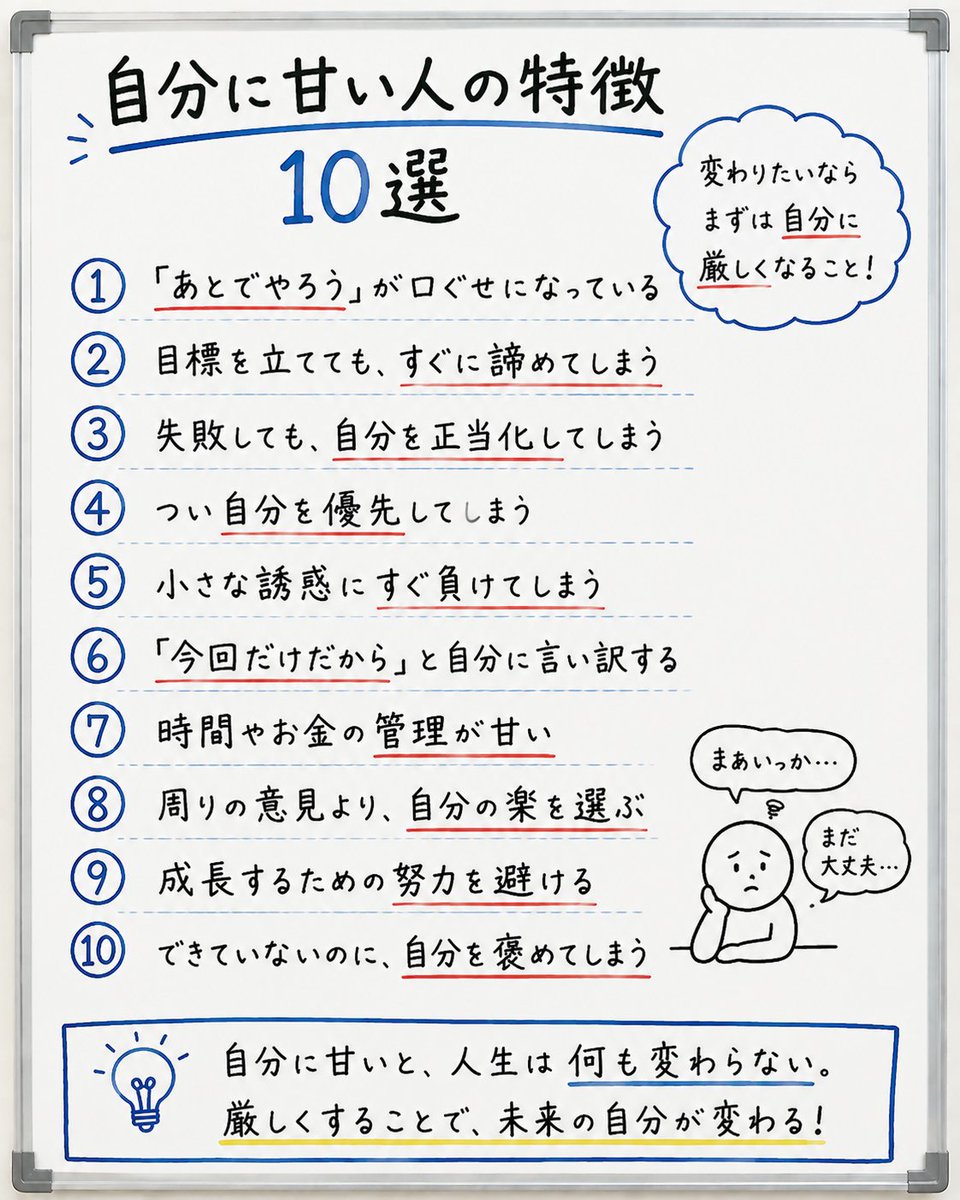 自分に甘い人の特徴
10選
変わりたいなら
まずは自分に
厳しくなること!
① 「あとでやろう」が口ぐせになっている
② 目標を立てても、すぐに諦めてしまう
③ 失敗しても、自分を正当化してしまう
④ つい自分を優先してしまう
⑤ 小さな誘惑にすぐ負けてしまう
⑥ 「今回だけだから」と自分に言い訳する
⑦ 時間やお金の管理が甘い
⑧ 周りの意見より、自分の楽を選ぶ
⑨ 成長するための努力を避ける
⑩ できていないのに、自分を褒めてしまう
まあいっか…
まだ
大丈夫…
自分に甘いと、人生は何も変わらない。
厳しくすることで、未来の自分が変わる!